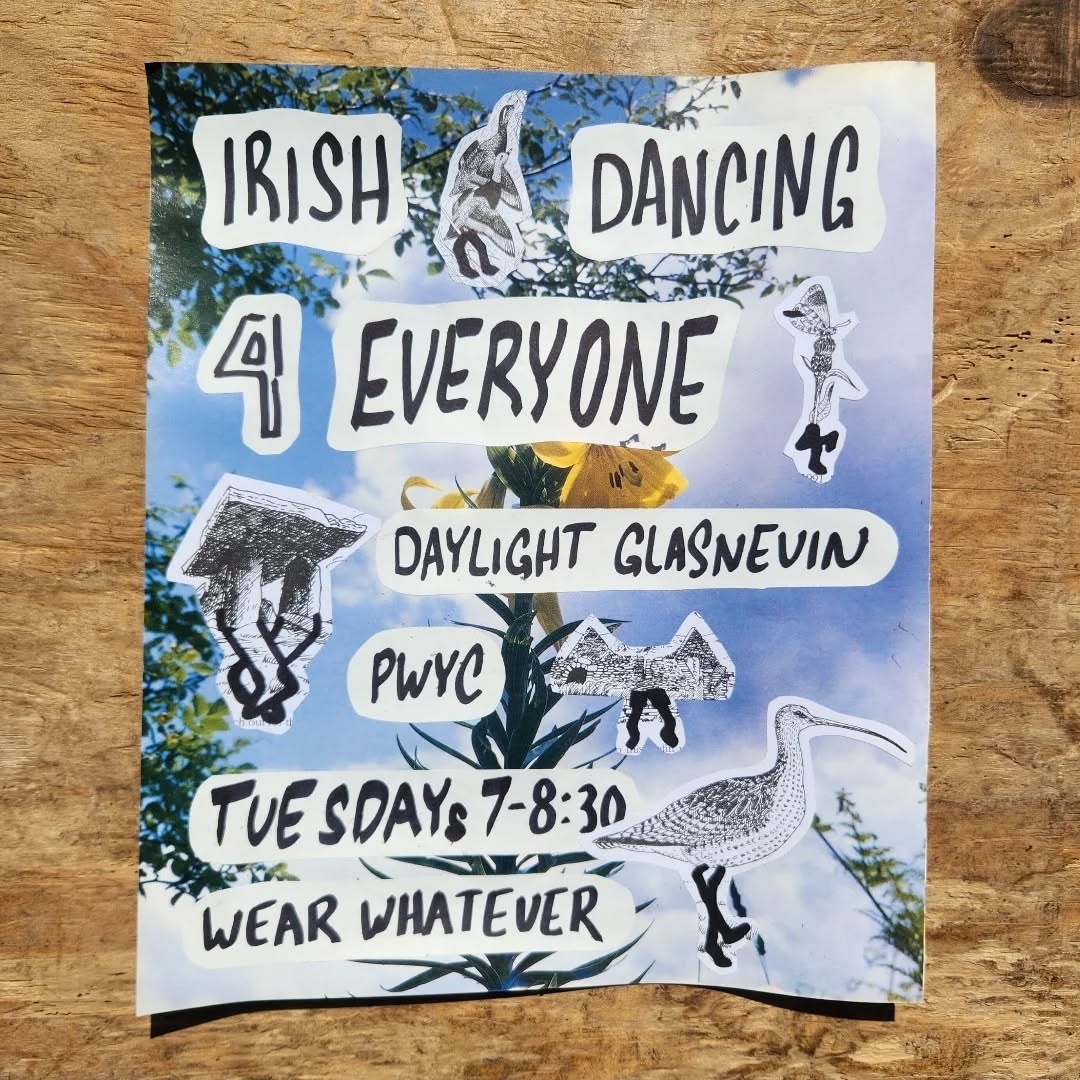 IRISH DANCING
4 EVERYONE
DAYLIGHT GLASNEVIN
PWYC
TUESDAYs 7-8:30
WEAR WHATEVER